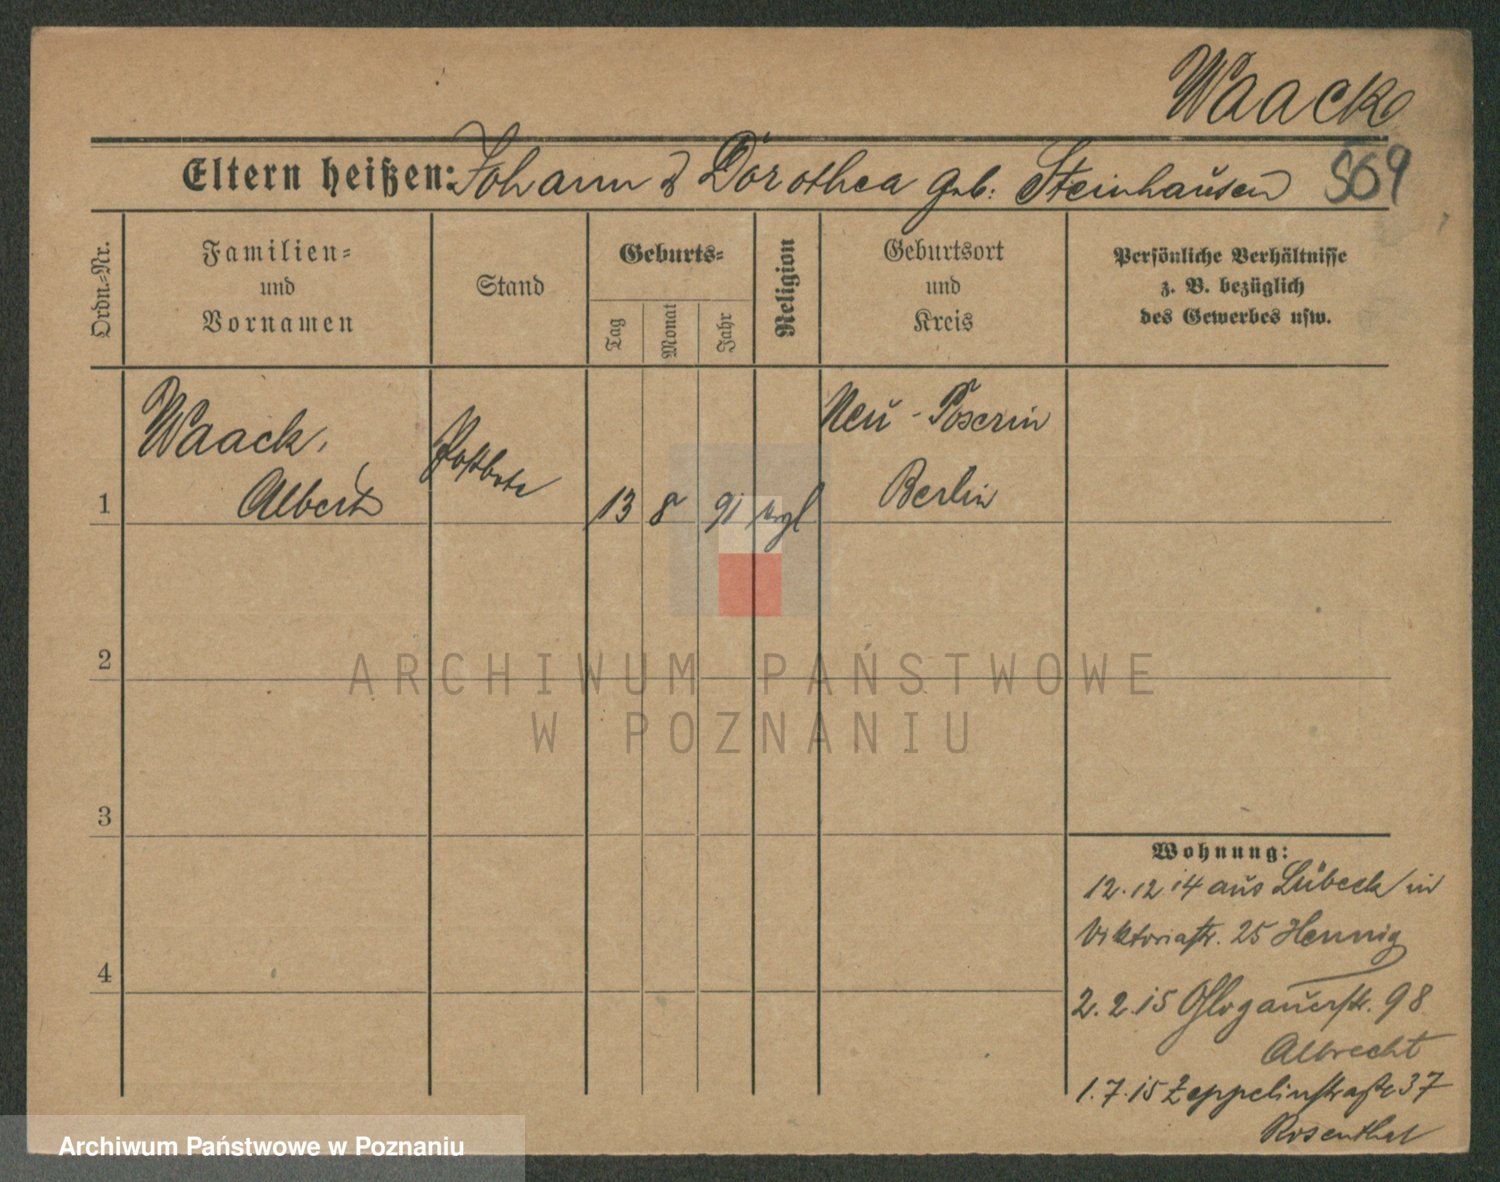 Waack
Eltern heißen: Johann & Dorothea geb. Steinhausen 569
Ordn.-Nr.
Familien-
und
Vornamen
Stand
Geburts-
Tag
Monat
Jahr
Religion
Geburtsort
und
Kreis
Persönliche Verhältnisse
z. B. bezüglich
des Gewerbes usw.
1
Waack,
Albert
Postbote
13 8 91 evgl
Neu-Poserin
Berlin
2
3
4
Wohnung:
12.12.14 aus Lübeck in
Viktoriastr. 25 Hennig
2.2.15 Glogauerstr. 98
Albrecht
1.7.15 Zeppelinstraße 37
Rosenthal
ARCHIWUM PAŃSTWOWE
W POZNANIU
Archiwum Państwowe w Poznaniu